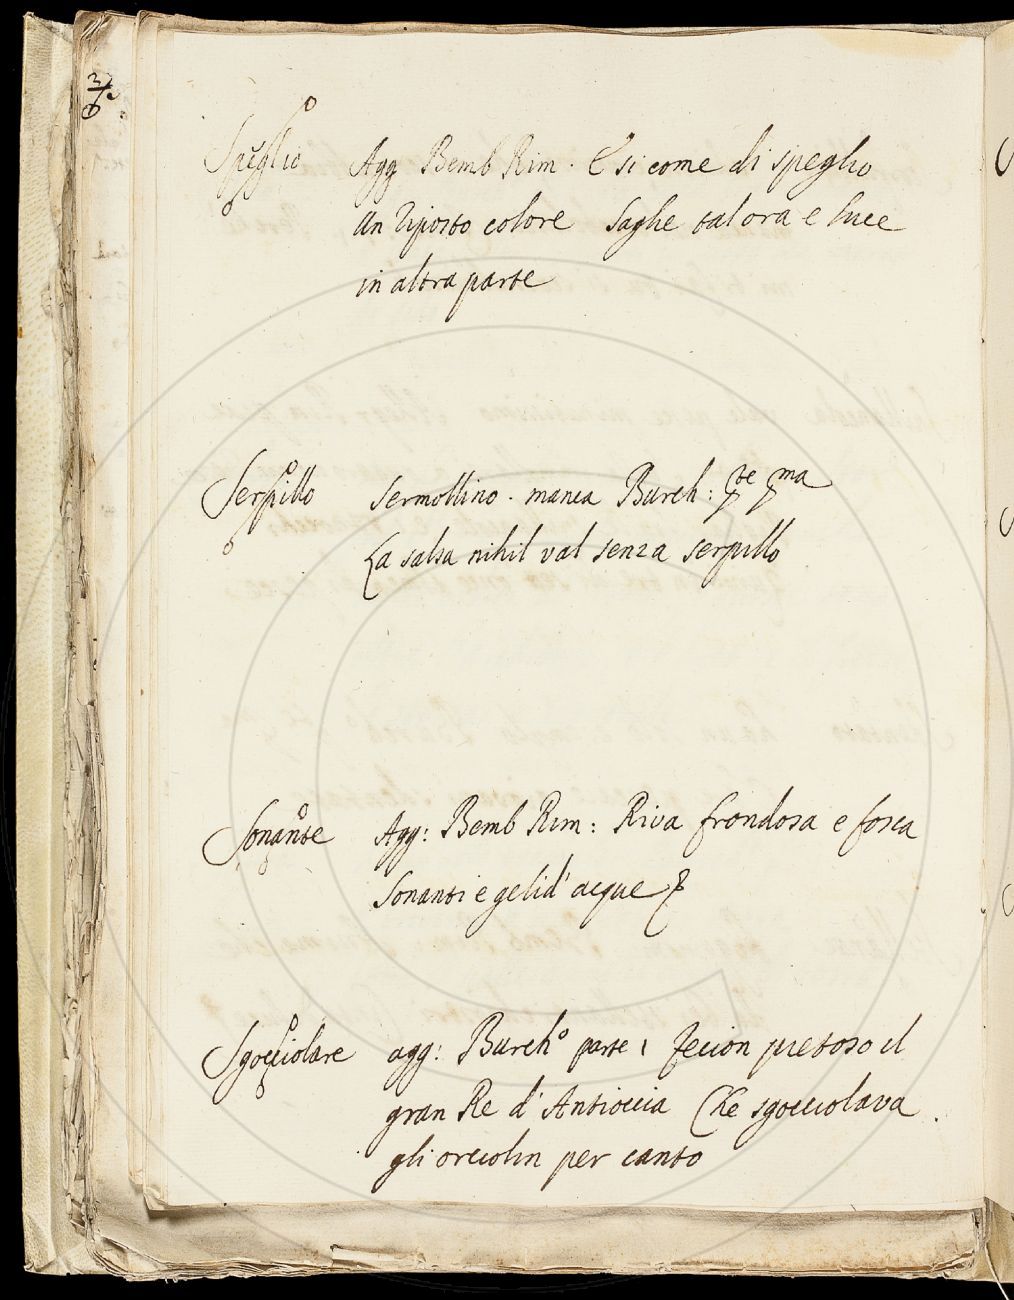 Speglio Agg Bemb Rim. E si come di speglio
Un riposto colore Saghe talora e luce
in altra parte
Serpillo sermollino. manca Burch: pte pma
La salsa nihil val senza serpillo
Sonante Agg: Bemb Rim: Riva frondosa e fosca
Sonanti e gelid' acque
Sgocciolare agg: Burcho parte 1 fecion pietoso il
gran Re d' Antioccia Che sgocciolava
gli orciolin per canto